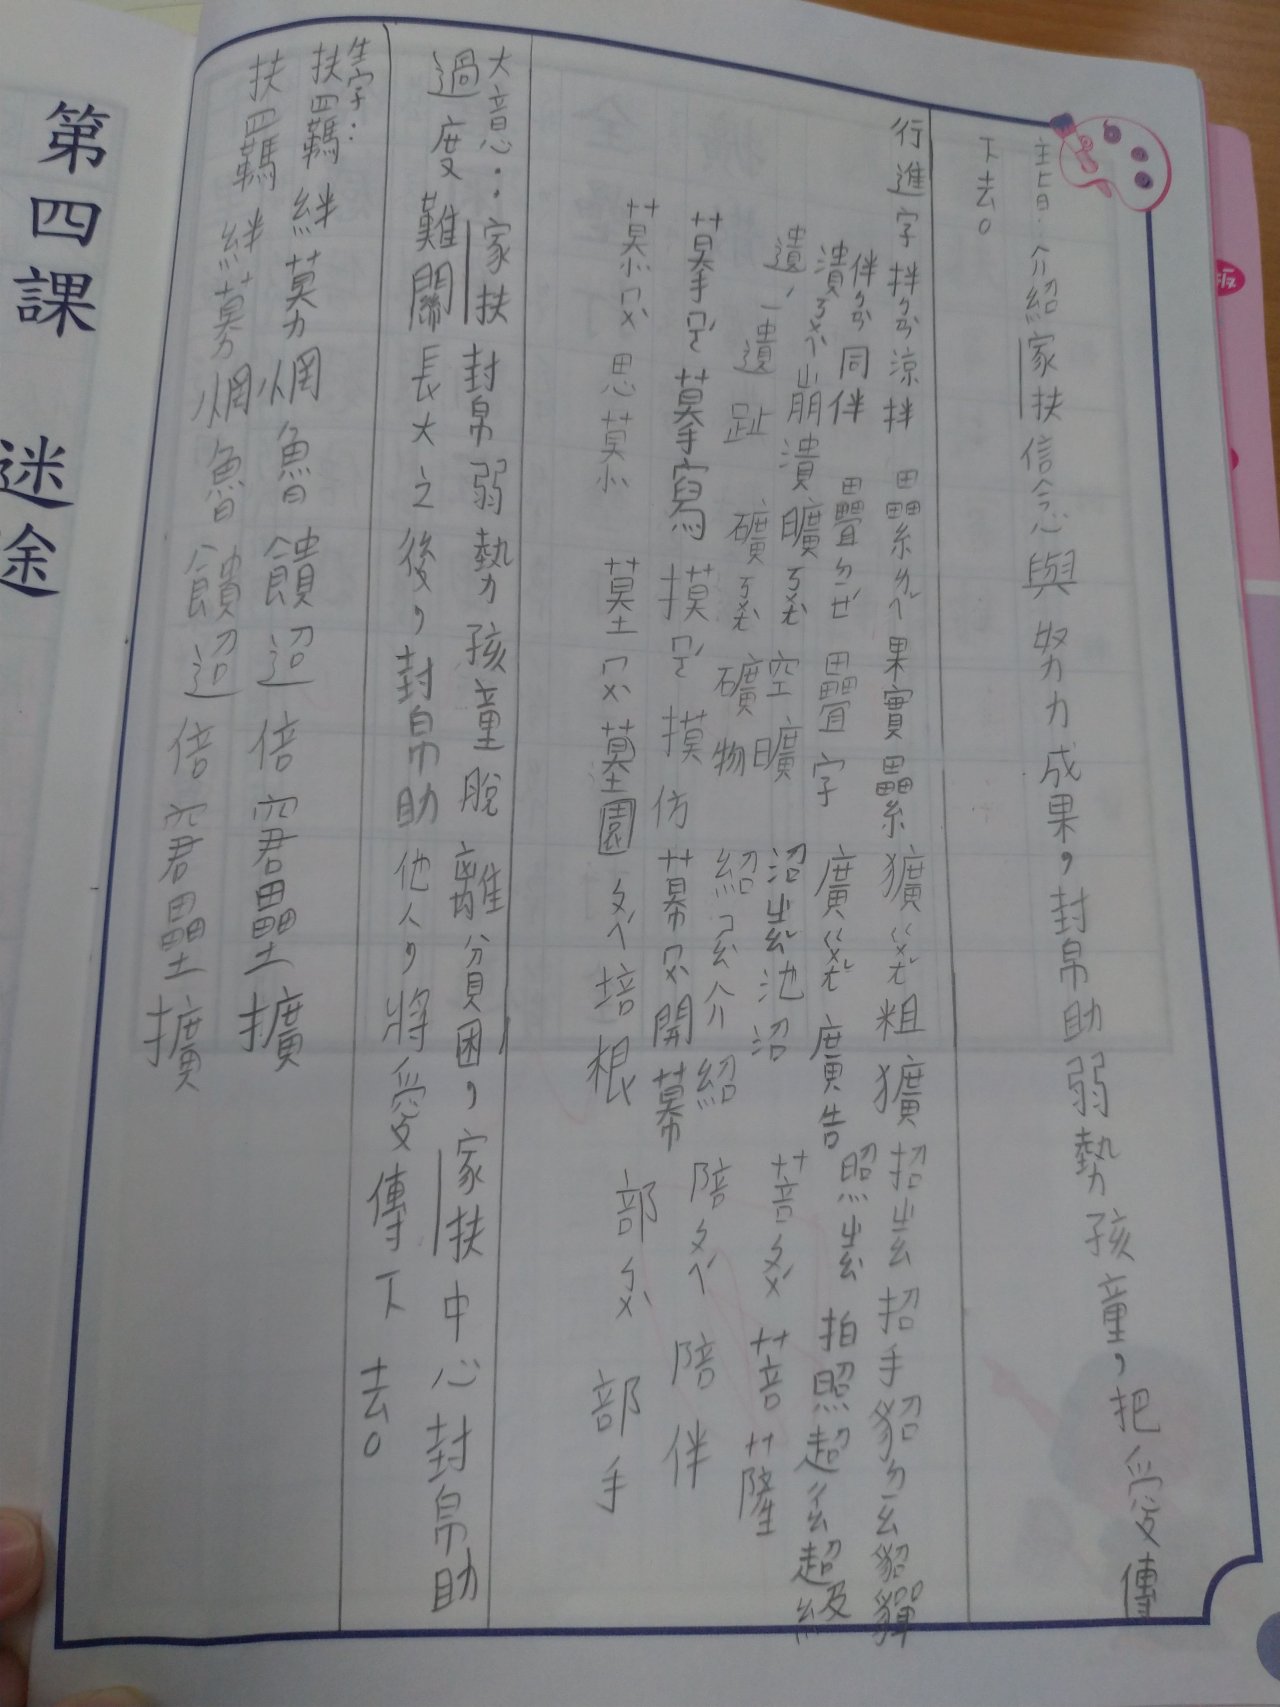 主旨:介紹家扶信念與努力成果,封帛助弱勢孩童,把愛傳
下去。
行進字拌ㄅㄢˋ涼拌 纍ㄌㄟˊ果實纍 獷ㄍㄨㄤˇ粗獷 招ㄓㄠ招手貂ㄉㄧㄠ貂蟬
伴ㄅㄢˋ同伴 疊ㄉㄧㄝˊ疊字 廣ㄍㄨㄤˇ廣告 照ㄓㄠˋ拍照超ㄔㄠ超級
潰ㄎㄨㄟˋ崩潰曠ㄎㄨㄤˋ空曠 沼ㄓㄠˇ池沼 菩ㄆㄨˊ菩薩
遺ㄧˊ遺趾 礦ㄎㄨㄤˋ礦物 紹ㄕㄠˋ介紹 陪ㄆㄟˊ陪伴
摹ㄇㄛˊ摹寫 摸ㄇㄛ摸仿 幕ㄇㄨˋ開幕 部ㄅㄨˋ部手
慕ㄇㄨˋ思慕 墓ㄇㄨˋ墓園 ㄆㄟˊ培根
大意:家扶封帛弱勢孩童脫離貧困,家扶中心封帛助
過度難關長大之後,封帛助他人,將愛傳下去。
生字:
扶四羈絆募惘魯饋迢倍窘壘擴
扶四羈絆募惘魯饋迢倍窘壘擴
第四課 迷途
版